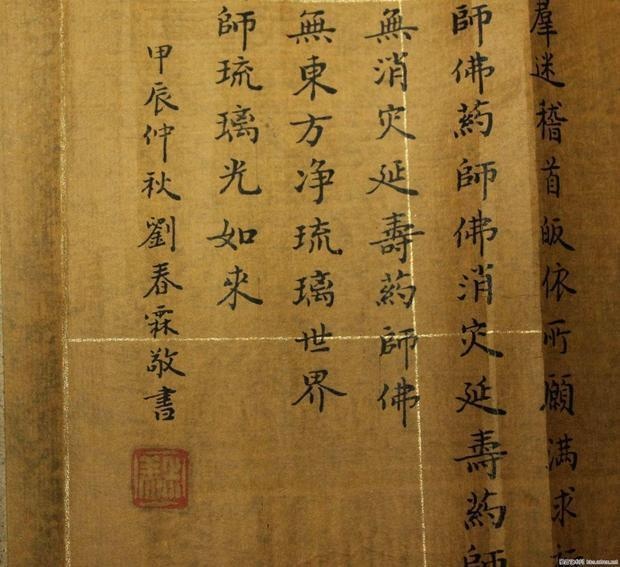 羣迷稽首皈依所願滿求
師佛藥師佛消灾延壽藥師
無消灾延壽藥師佛
無東方净琉璃世界
師琉璃光如來
甲辰仲秋劉春霖敬書